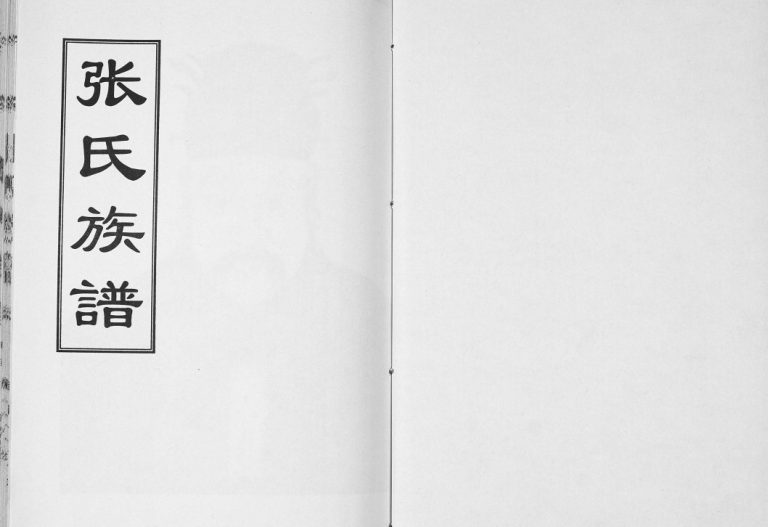 张氏族譜